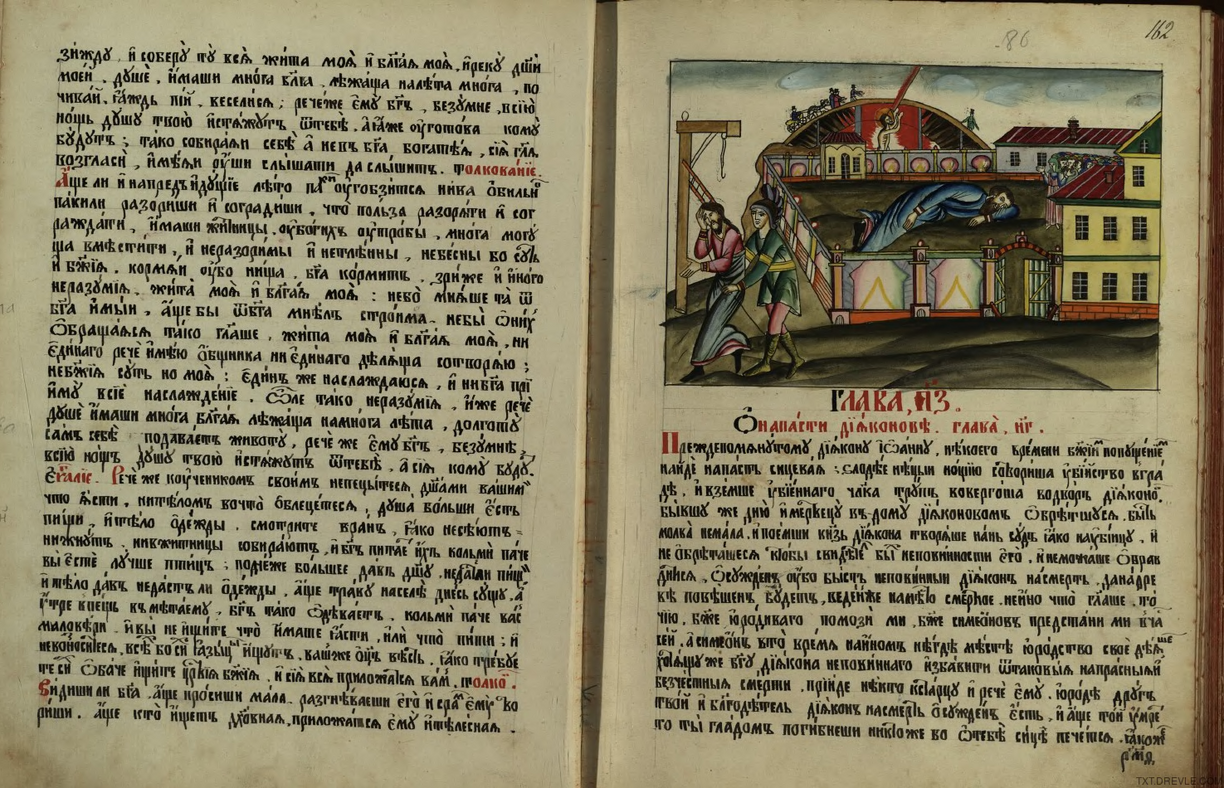 зиждꙋ и соберꙋ тꙋ всѧ жита моѧ и бл҃гаѧ моѧ. и рекꙋ дш҃и
моей. дꙋше, имаши многа бл҃га, лежаща на лѣта многа, по
чивай, ꙗждь пїй, веселисѧ; рече же емꙋ бг҃ъ, безꙋмне, всїю
нощь дꙋшꙋ твою истѧжꙋтъ ѿ тебе. а ꙗже оуготова комꙋ
бꙋдꙋтъ; тако собираѧи себѣ а не въ бг҃а богатѣѧ, сїѧ гл҃ѧ
возгласи, имѣѧи оуши слышати да слышитъ. толкованїе.
Аще ли и напредъидꙋщїе лѣто оугобзитсѧ нива обильно
паки ли разориши и соградиши. что польза разорѧти и сог
раждати, имаши житницы, оубогихъ оутробы, многа могꙋ
ща вмѣстити, и неразоримы и нетлѣнны, небесны бо сꙋть
и бж҃їѧ. кормѧи оубо нища, бг҃а кормитъ. зри же и иного
неразꙋмїѧ. жита моѧ и бл҃гаѧ моѧ: не бо мнѧше та ѿ
бг҃а имый, аще бы ѿ бг҃а мнѣлъ строима. не бы ѡ нихъ
ѡбращаѧсѧ тако гл҃аше, жита моѧ и бл҃гаѧ моѧ, ни
единаго рече имѣю ѡбщника ни единаго дѣлѧща сотворѧю;
не бж҃їѧ сꙋть но моѧ: единъ же наслаждаюсѧ, и ни бг҃а прї
имꙋ в сїе наслажденїе. ѽле тако неразꙋмїѧ, иже рече
дꙋше имаши многа бл҃гаѧ лежаща на многа лѣта, долготꙋ
самъ себе подаваетъ животꙋ, рече же емꙋ бг҃ъ, безꙋмне,
в сїю нощъ дꙋшꙋ твою истѧжꙋтъ ѿ тебе, а сїѧ комꙋ бꙋдꙋ.
Еѵ҃лїе. Рече же ко оученикомъ своимъ не пецытесѧ, дш҃ами вашими
что ꙗсти, ни тѣломъ во что ѡблецетесѧ, дꙋша больши есть
пищи, и тѣло одежды. смотрите вранъ, ꙗко не сѣютъ
ни жнꙋтъ, ни в житницы собираютъ, и бг҃ъ питаетъ ихъ кольми паче
вы есте лꙋчше птицъ; понеже большее давъ дш҃ꙋ, не дастъ ли пищи
и тѣло давъ не дастъ ли одежды, аще травꙋ на селѣ днесь сꙋщꙋ, а
оутре в пещь въметаемꙋ, бг҃ъ тако ѡдѣваетъ, кольми паче васъ
маловѣри. и вы не ищите что имаше ꙗсти, или что пити; и
не возноситесѧ, всѣхъ бо сихъ ꙗзыцы ищꙋтъ, вашъ же оц҃ъ вѣсть, ꙗко требꙋе
те сихъ обаче ищите црс҃твїѧ бж҃їѧ, и сїѧ всѧ приложатсѧ вамъ. толко.
Видиши ли бг҃а. аще просиши мала, разгнѣваеши его и срамъ емꙋ тво
риши. аще кто ищетъ дꙋховнаѧ, приложатсѧ емꙋ и тѣлеснаѧ.
86
162
ГЛАВА, н҃з.
Ѡ напасти дїѧконовѣ. глава, н҃г.
Преждепомѧнꙋтомꙋ, дїѧконꙋ іѡаннꙋ, нѣкоего времени бж҃їимъ попꙋщенїемъ
найде напасть сицеваѧ: злодѣе нѣцыи нощїю сотвориша оубїйство въ гра
дѣ, и вземше оубїеннаго чл҃ка трꙋпъ вовергоша во дворъ дїѧконовъ.
бывшꙋ же дню и мертвецꙋ в домꙋ дїѧконовомъ ѡбрѣтшꙋсѧ, бысть
молва немала. и поемши кнѧзь дїѧкона творѧше нань сꙋдъ ꙗко на оубїйцꙋ, и
не обрѣташесѧ кто бы свидѣтель былъ неповинности его. и не можаше ѡправ
дитисѧ, ѡсꙋжденъ оубо бысть неповинный дїѧконъ на смерть, да на дре
вѣ повѣшенъ бꙋдетъ, ведей же на мѣсто смертное. не ино что гл҃аше, то
чїю, бж҃е юродиваго помози ми, бж҃е симеѡновъ предстани ми в часъ
сей. а симеѡнъ в то время на иномъ нѣгдѣ мѣстѣ юродство свое дѣѧше
хотѧщꙋ же бг҃ꙋ дїѧкона неповиннаго избавити ѿ таковыѧ напрасныѧ и
безчестныѧ смерти, прїйде нѣкто къ старцꙋ и рече емꙋ. юроде дрꙋгъ
твой и благодѣтель дїѧконъ на смерть ѡсꙋжденъ есть, и аще той оумре
то ты гладомъ погибнеши никто же бо ѡ тебѣ сице печетсѧ. ꙗкоже
TXT.DREVLE.COM